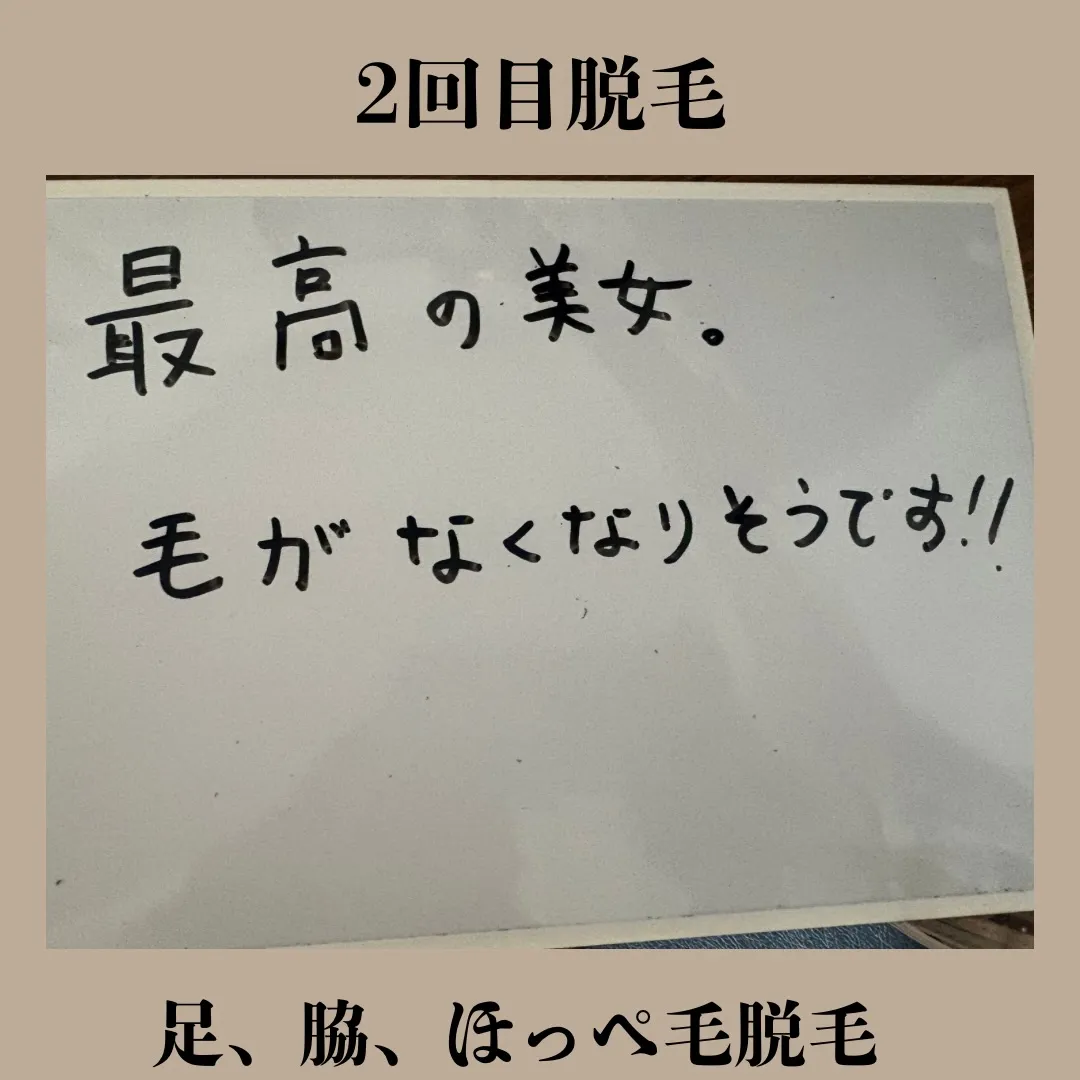 2回目脱毛
最高の美女。
毛がなくなりそうです!!
足、脇、ほっぺ毛脱毛